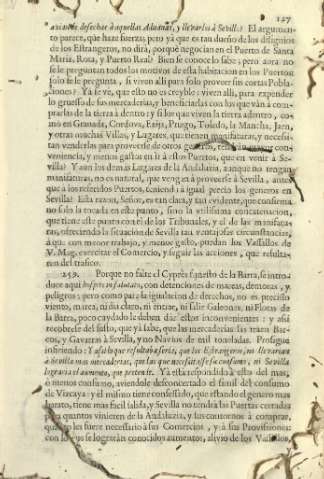 127
desechar à aquellas Aduanas, y llevarlos à Sevilla? El argumen-
to parece, que haze fuerça, pero ya que es tan dueño de los designios
de los Estrangeros, no dirà, porquè negocian en el Puerto de Santa
Maria, Rota, y Puerto Real? Bien se conoce lo sabe; pero aora no
se le preguntan todos los motivos de esta habitacion en los Puertos:
solo se le pregunta, si viven alli para solo proveer sus cortas Pobla-
ciones? Yà se vè, que esto no es creyble: viven alli, para expender
lo gruesso de sus mercaderias, y beneficiarlas con los que vàn à com-
prarlas de la tierra à dentro; y si los que viven tierra adentro, co-
mo en Granada, Cordova, Ezija, Priego, Toledo, la Mancha, Jaen,
y otras muchas Villas, y Lugares, que tienen manifacturas, y necessi-
tan venderlas para proveerse de otros generos, tendràn mayor con-
veniencia, y menos gastos en ir à estos Puertos, que en venir à Se-
villa? Y aun los demàs Lugares de la Andaluzia, aunque no tengan
manifacturas, no es natural, que vengan à proveerse à Sevilla, antes
que à los referidos Puertos, teniendo à igual precio los generos en
Sevilla? Esta razon, Señor, es tan clara, y tan evidente, que conserva
no solo la tocada en este punto, sino la utilissima concatenacion,
que tiene este punto con el de los Tribunales, y el de las manifatu-
ras, ofreciendo la situacion de Sevilla tan ventajosas circunstancias,
à que con menor trabajo, y menos gasto, puedan los Vassallos de
V. Mag. exercitar el Comercio, y seguir las acciones, que resulta-
ren del trafico.
259. Porque no falte el Cyprès funesto de la Barra, se intro-
duce aqui con detenciones de mareas, demoras, y
peligros; pero como para la igualacion de derechos, no es preciso
viento, marea, ni dia claro, ni entrar, ni salir Galeones, ni Flotas de
la Barra, poco cuydado le deben dar estos inconvenientes: y assi
recobrese del susto, que yà sabe, que las mercaderias las traen Bar-
cos, y Gavarras à Sevilla, y no Navios de mil toneladas. Prosigue
infiriendo: Y assi lo que resultaria seria, que los Estrangeros, ni llevaràn
à Sevilla mas mercaderias, que las que necessitasse su consumo, ni Sevilla
lograria el aumento, que pretende. Yà està respondido à esto del mas,
ò menos consumo, aviendole desconcertado el simil del consumo
de Vizcaya: y èl mismo tiene confessado, que estando el genero mas
barato, tiene mas facil salida, y Sevilla no tendrà las Puertas cerradas
para quantos vinieren de la Andaluzia, y sus contornos à comprar,
quanto les fuere necessario à sus Comercios, y à sus Provisiones:
con lo que se lograràn conocidos aumentos, alivio de los Vassallos,